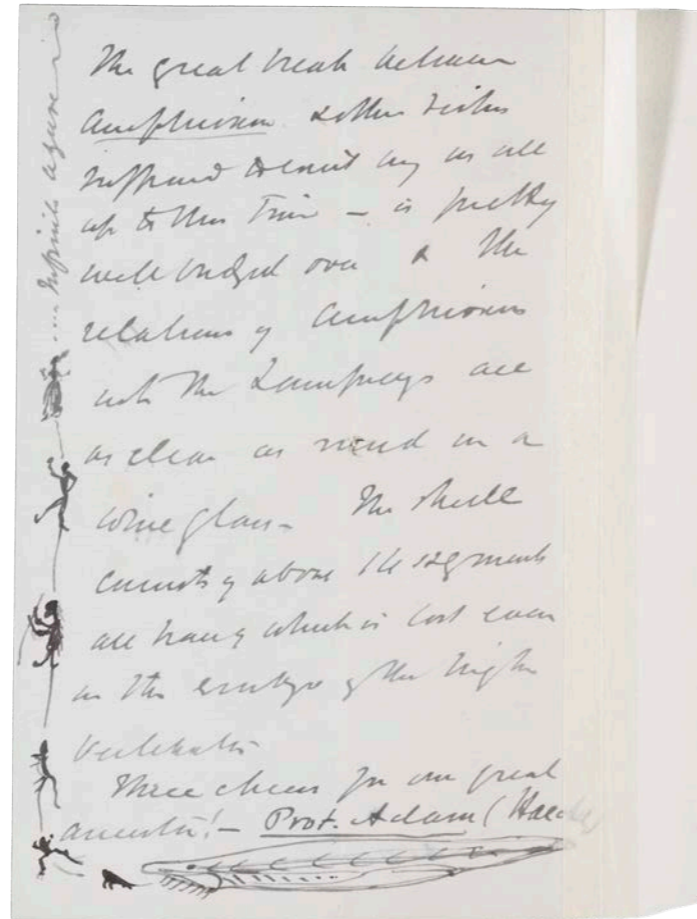 The great break between
Amphioxus & other Fishes
supposed to exist by us all
up to this Time — is pretty
well bridged over & the
relations of Amphioxus
with the Lampreys are
as clear as mud in a
wine glass — The skull
consists of about 14 segments
all trace of which is lost even
in the embryo of the higher
vertebrates
Three cheers for our great
ancestor! — Prof. Adam (Haeckel
Infinite